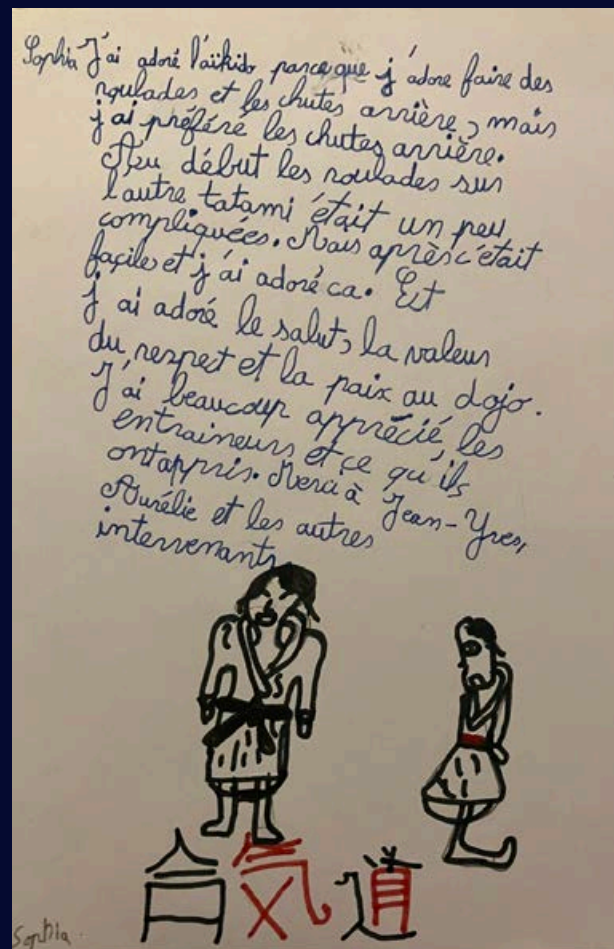 Sophia J'ai adoré l'aïkido parce que j'adore faire des
roulades et les chutes arrière, mais
j'ai préféré les chutes arrière.
Au début les roulades sur
l'autre tatami était un peu
compliquées. Mais après c'était
facile et j'ai adoré ca. Et
j'ai adoré le salut, la valeur
du respect et la paix au dojo.
J'ai beaucoup apprécié les
entraineurs et ce qu'ils
ont appris. Merci à Jean-Yves,
Aurélie et les autres
intervenants
合気道
Sophia